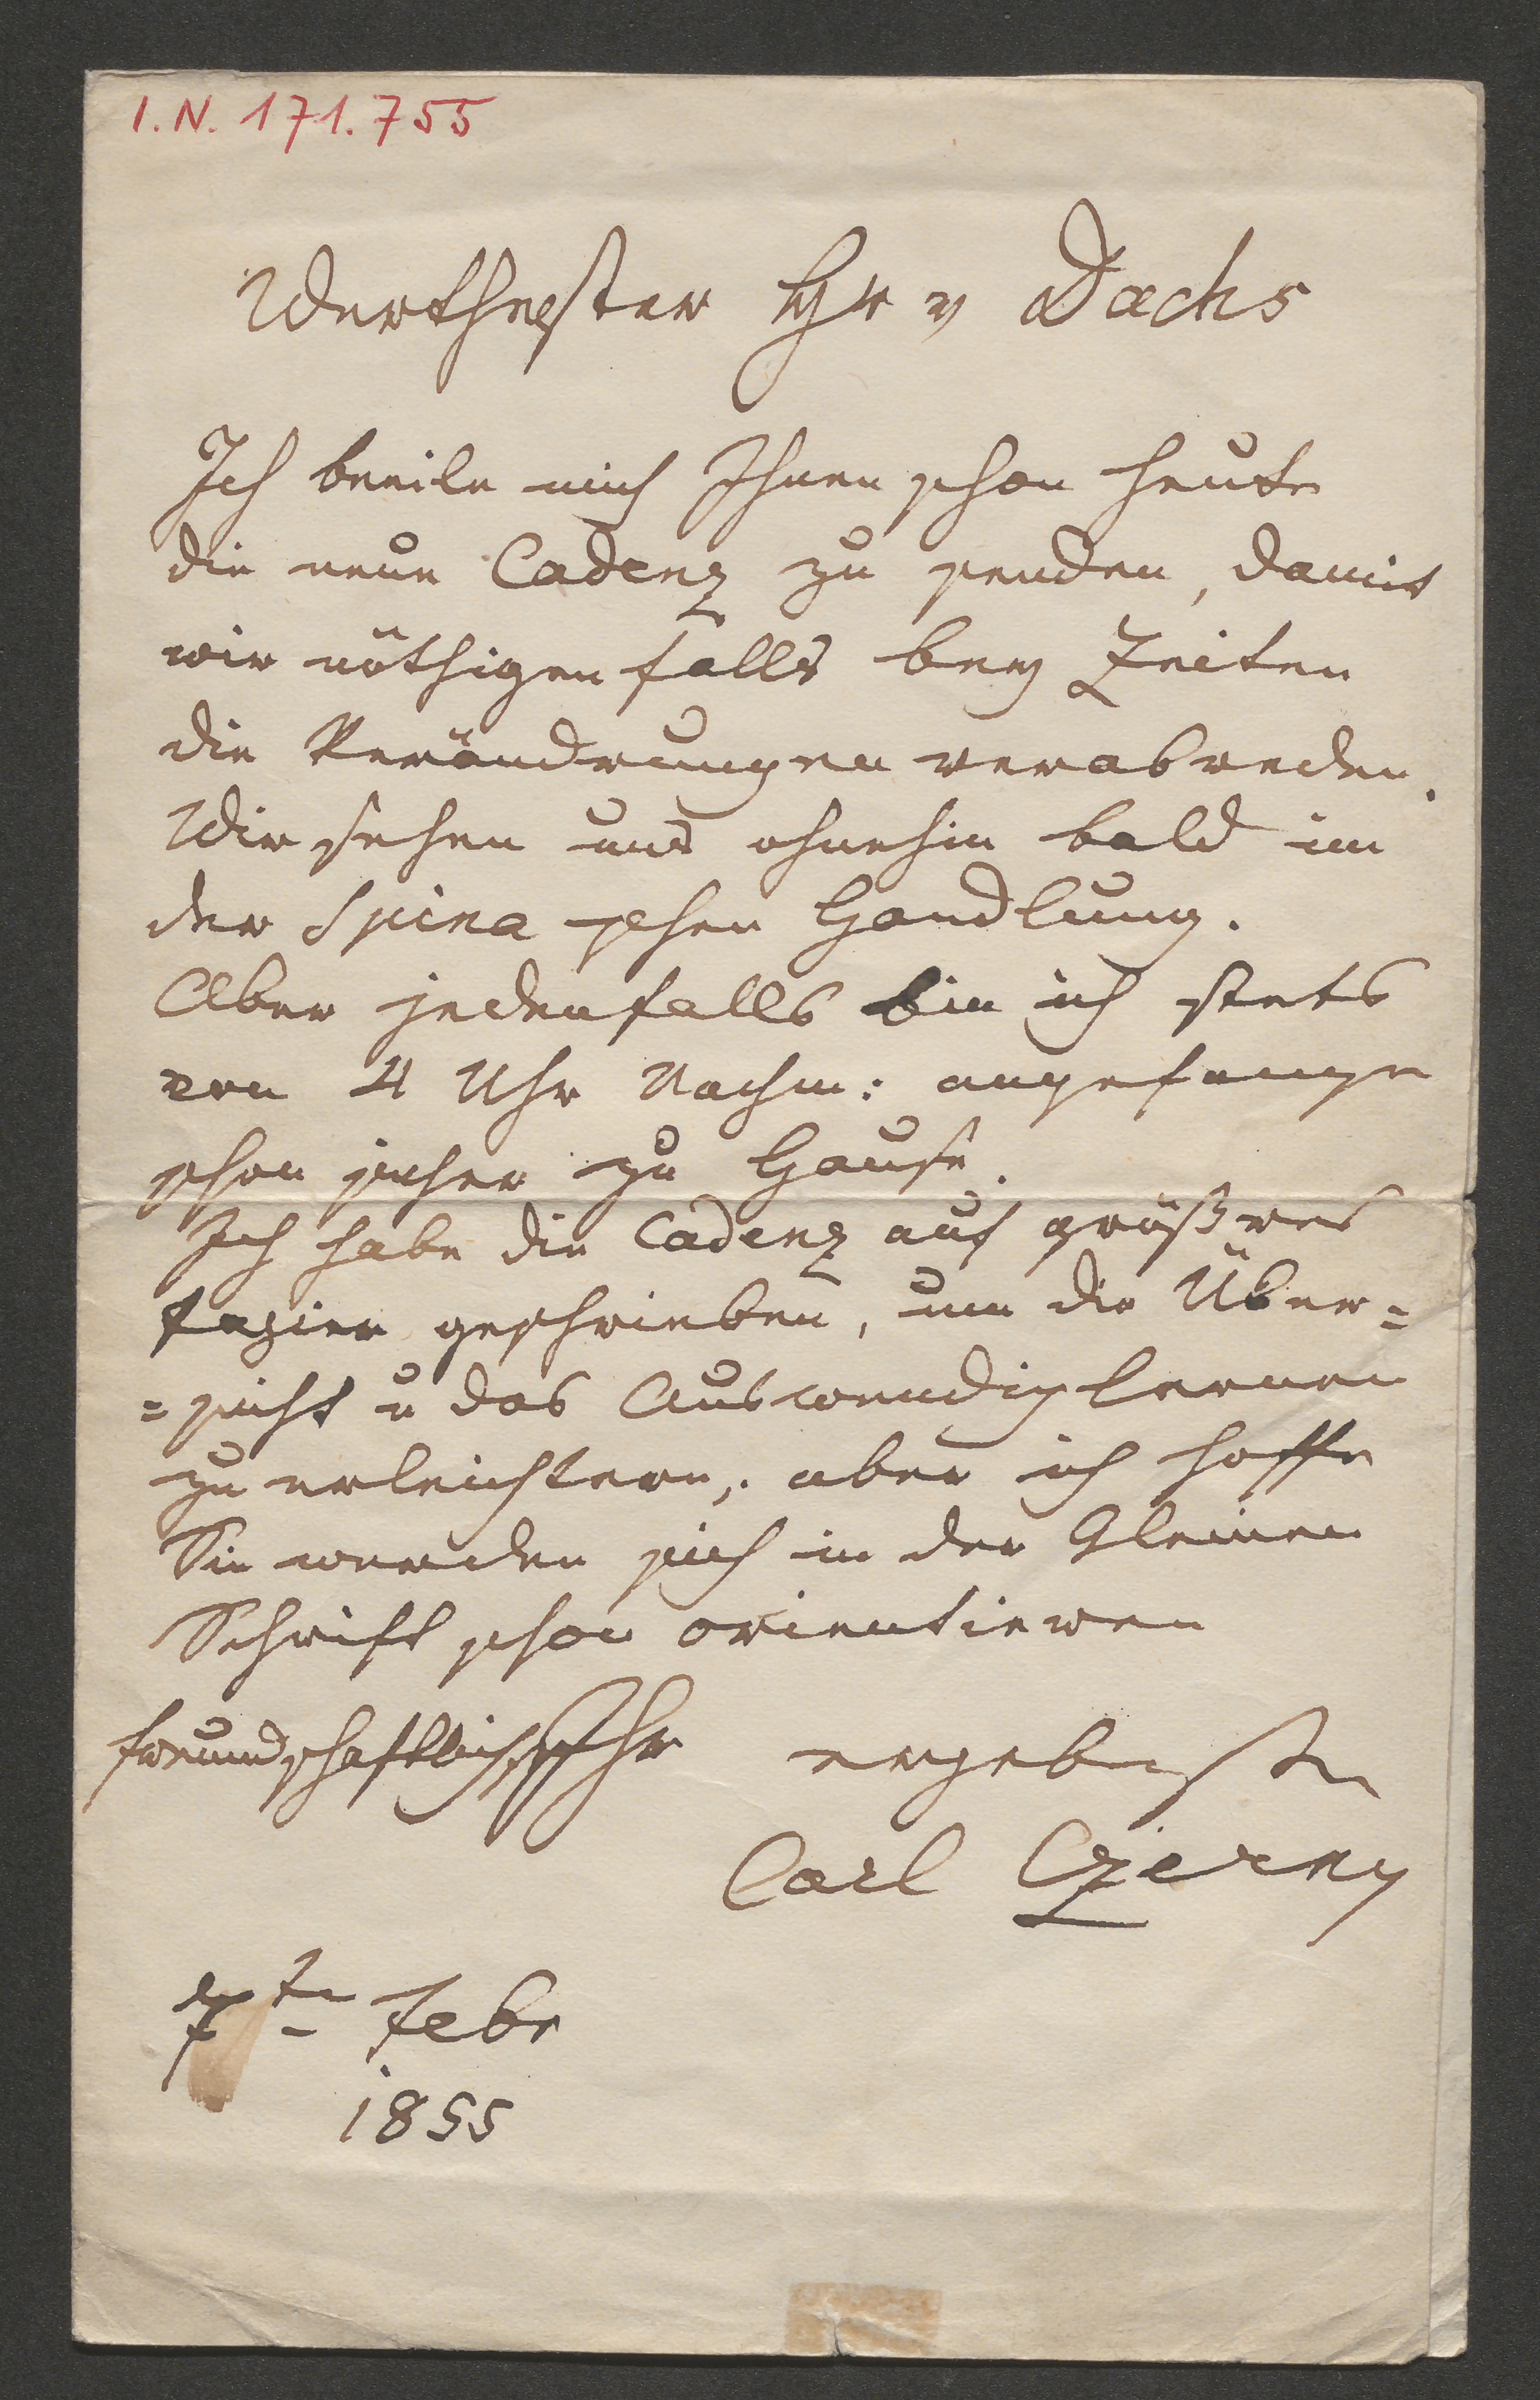 I.N. 171.755
Werthester Hr v Dachs
Ich beeile mich Ihnen schon heute
die neue Cadenz zu senden, damit
wir nöthigenfalls bey Zeiten
die Verändrungen verabreden.
Wir sehen uns ohnehin bald in
der Spina schen Handlung.
Aber jedenfalls bin ich stets
von 4 Uhr Nachm: angefangen
schon sicher zu Hause.
Ich habe die Cadenz auf größres
Papier geschrieben, um die Über=
=sicht u das Auswendiglernen
zu erleichtern, aber ich hoffe
Sie werden sich in der kleinen
Schrift schon orientieren
freundschaftlichst Ihr ergebenster
Carl Czerny
7te Febr
1855